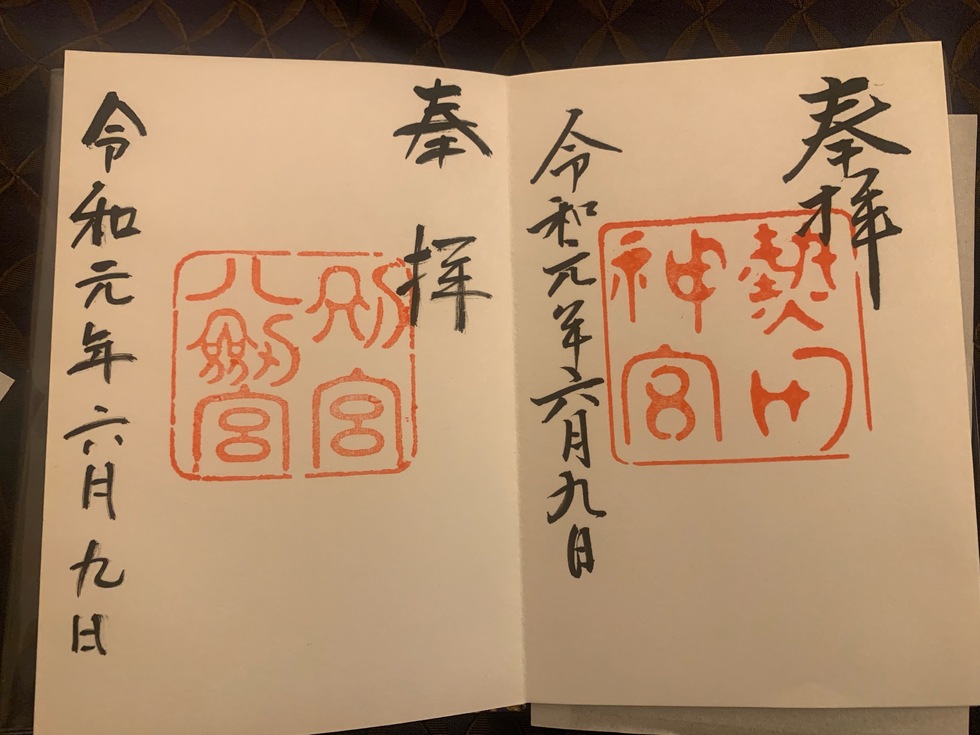 奉拝
熱田
神宮
令和元年六月九日
奉拝
別宮
八剱宮
令和元年六月九日